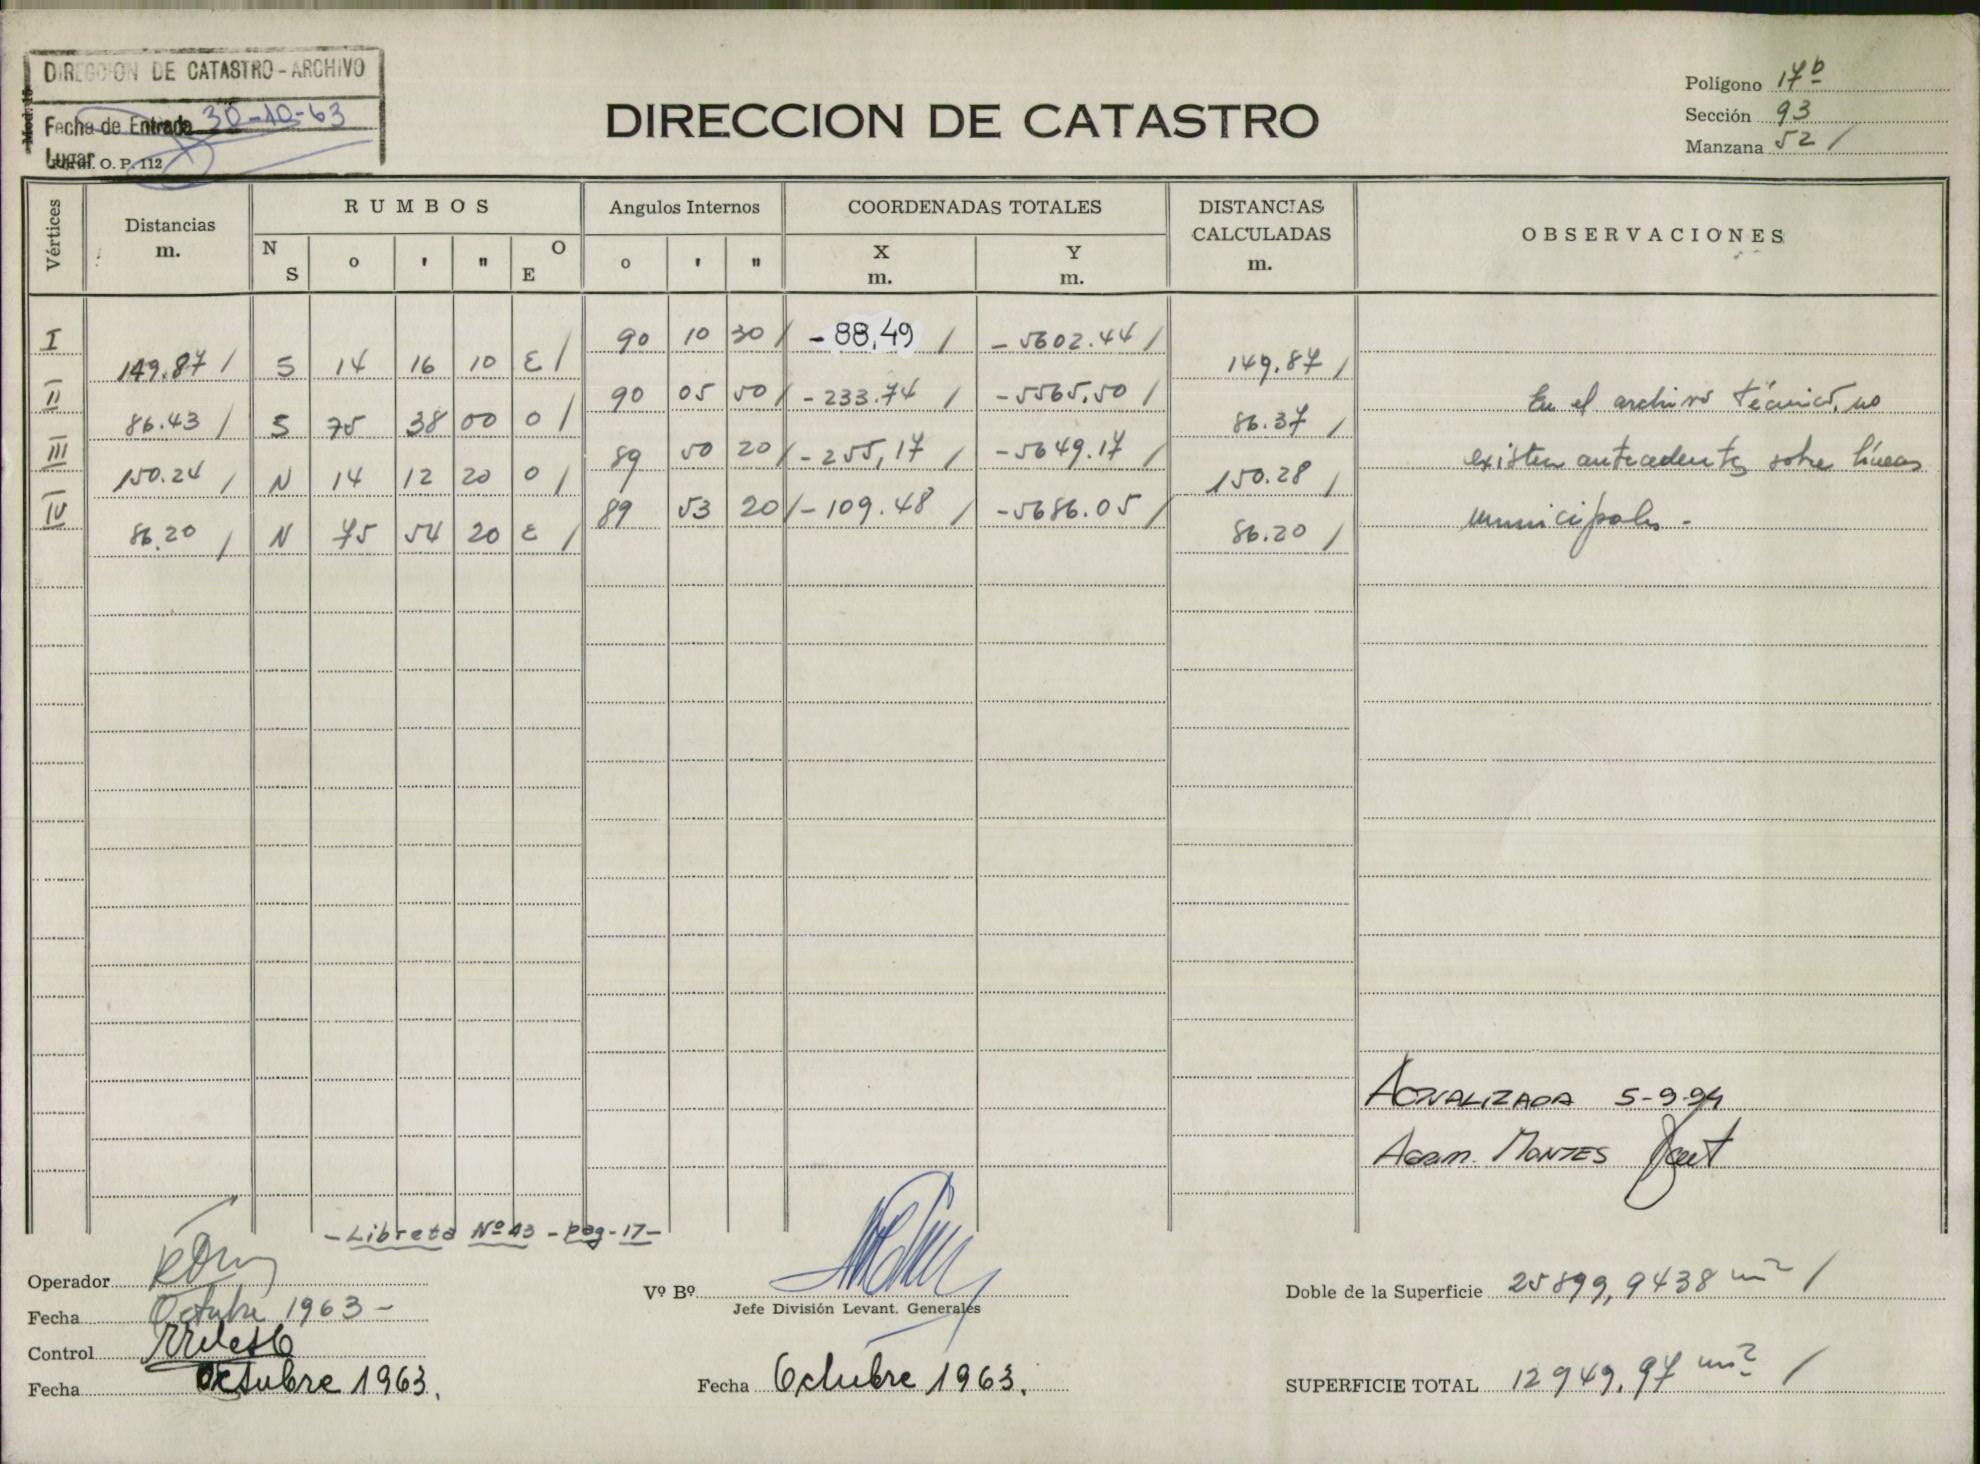 DIRECCION DE CATASTRO - ARCHIVO
Fecha de Entrada 30-10-63
Lugar
O. P. 112
DIRECCION DE CATASTRO
Polígono 17b
Sección 93
Manzana 52 /
Vértices
Distancias m.
RUMBOS
N S o ' " O E
Angulos Internos
o ' "
COORDENADAS TOTALES
X m. Y m.
DISTANCIAS CALCULADAS m.
OBSERVACIONES
I 90 10 30 / -88,49 / -5602.44 /
149.87 / S 14 16 10 E / 149.87 /
II 90 05 50 / -233.74 / -5565,50 / En el archivo técnico, no
86.43 / S 75 38 00 O / 86.37 /
III 89 50 20 / -255,17 / -5649.17 / existen antecedentes sobre líneas
150.24 / N 14 12 20 O / 150.28 /
IV 89 53 20 / -109.48 / -5686.05 / municipales -
86.20 / N 75 54 20 E / 86.20 /
ACTUALIZADA 5-9-94
AGRIM. MONTES
-Libreta Nº 43 - pag-17-
Operador
Fecha Octubre 1963 -
Control
Fecha Octubre 1963.
Vº Bº
Jefe División Levant. Generales
Fecha Octubre 1963.
Doble de la Superficie 25899,9438 m² /
SUPERFICIE TOTAL 12949,97 m² /